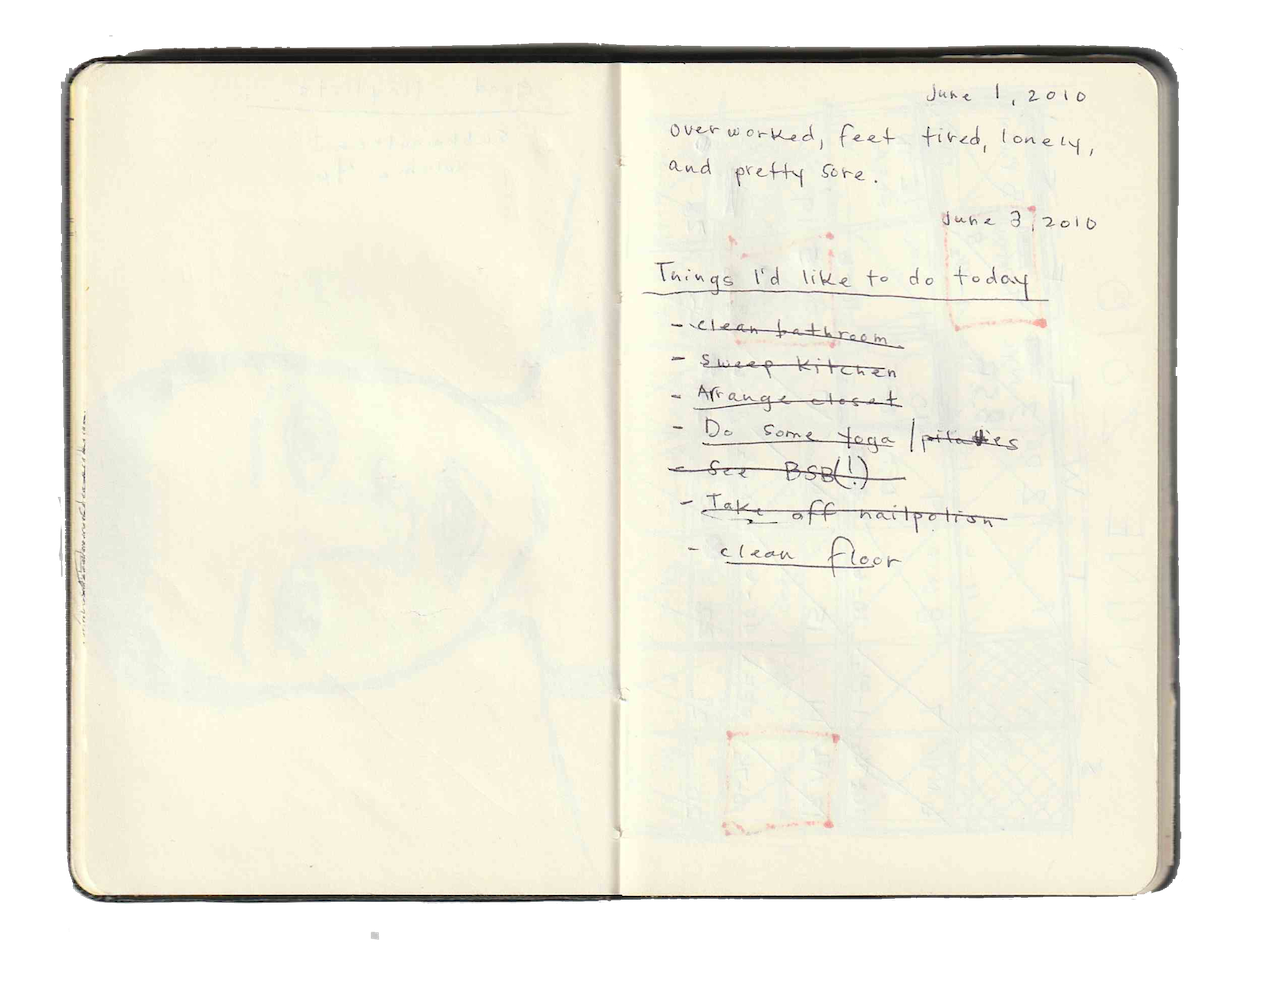 June 1, 2010
overworked, feet tired, lonely,
and pretty sore.
June 3, 2010
Things I'd like to do today
- clean bathroom
- sweep kitchen
- Arrange closet
- Do some yoga / pilates
- See BSB(!)
- Take off nailpolish
- clean floor